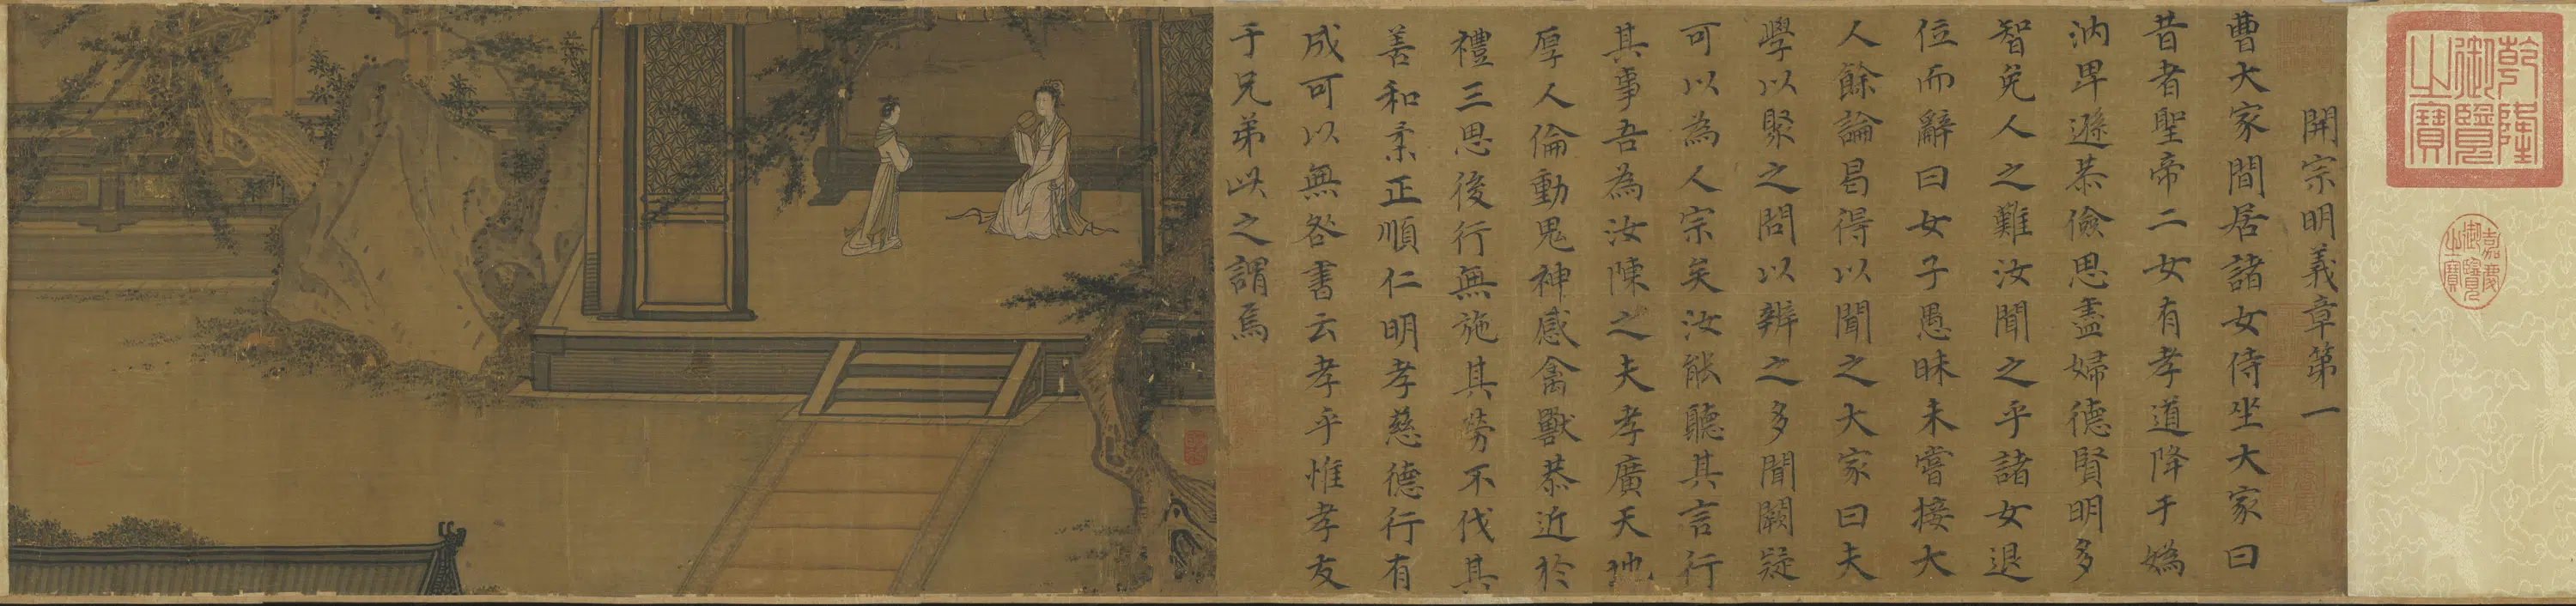 乾隆御覽之寶
嘉慶御覽之寶
開宗明義章第一
曹大家間居諸女侍坐大家曰
昔者聖帝二女有孝道降于媯
汭卑遜恭儉思盡婦德賢明多
智免人之難汝聞之乎諸女退
位而辭曰女子愚昧未嘗接大
人餘論曷得以聞之大家曰夫
學以聚之問以辨之多聞闕疑
可以為人宗矣汝能聽其言行
其事吾為汝陳之夫孝廣天地
厚人倫動鬼神感禽獸恭近於
禮三思後行無施其勞不伐其
善和柔正順仁明孝慈德行有
成可以無咎書云孝乎惟孝友
于兄弟此之謂焉